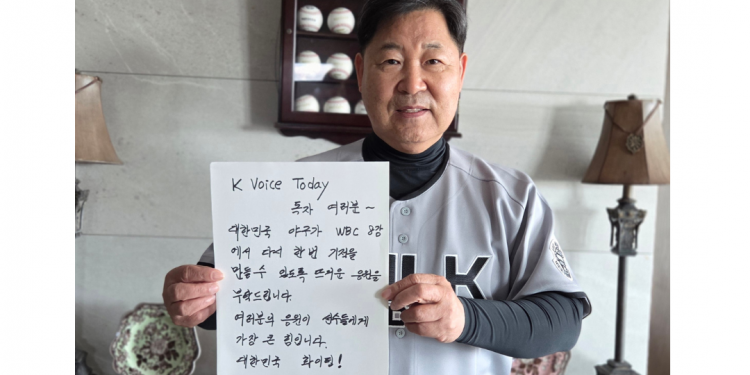 K Voice Today
독자 여러분~
대한민국 야구가 WBC 8강
에서 다시 한번 기적을
만들 수 있도록 뜨거운 응원을
부탁드립니다.
여러분의 응원이 선수들에게
가장 큰 힘입니다.
대한민국 화이팅!
LK